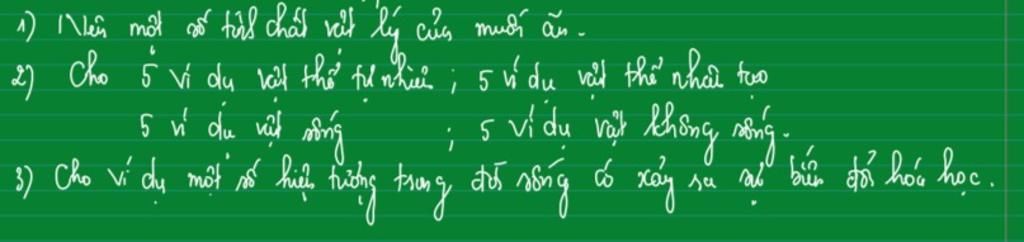 1) Nêu một số tính chất vật lý của muối ăn.
2) Cho 5 ví dụ vật thể tự nhiên ; 5 ví dụ vật thể nhân tạo
5 ví dụ vật sống ; 5 ví dụ vật không sống.
3) Cho ví dụ một số hiện tượng trong đời sống có xảy ra sự biến đổi hóa học.